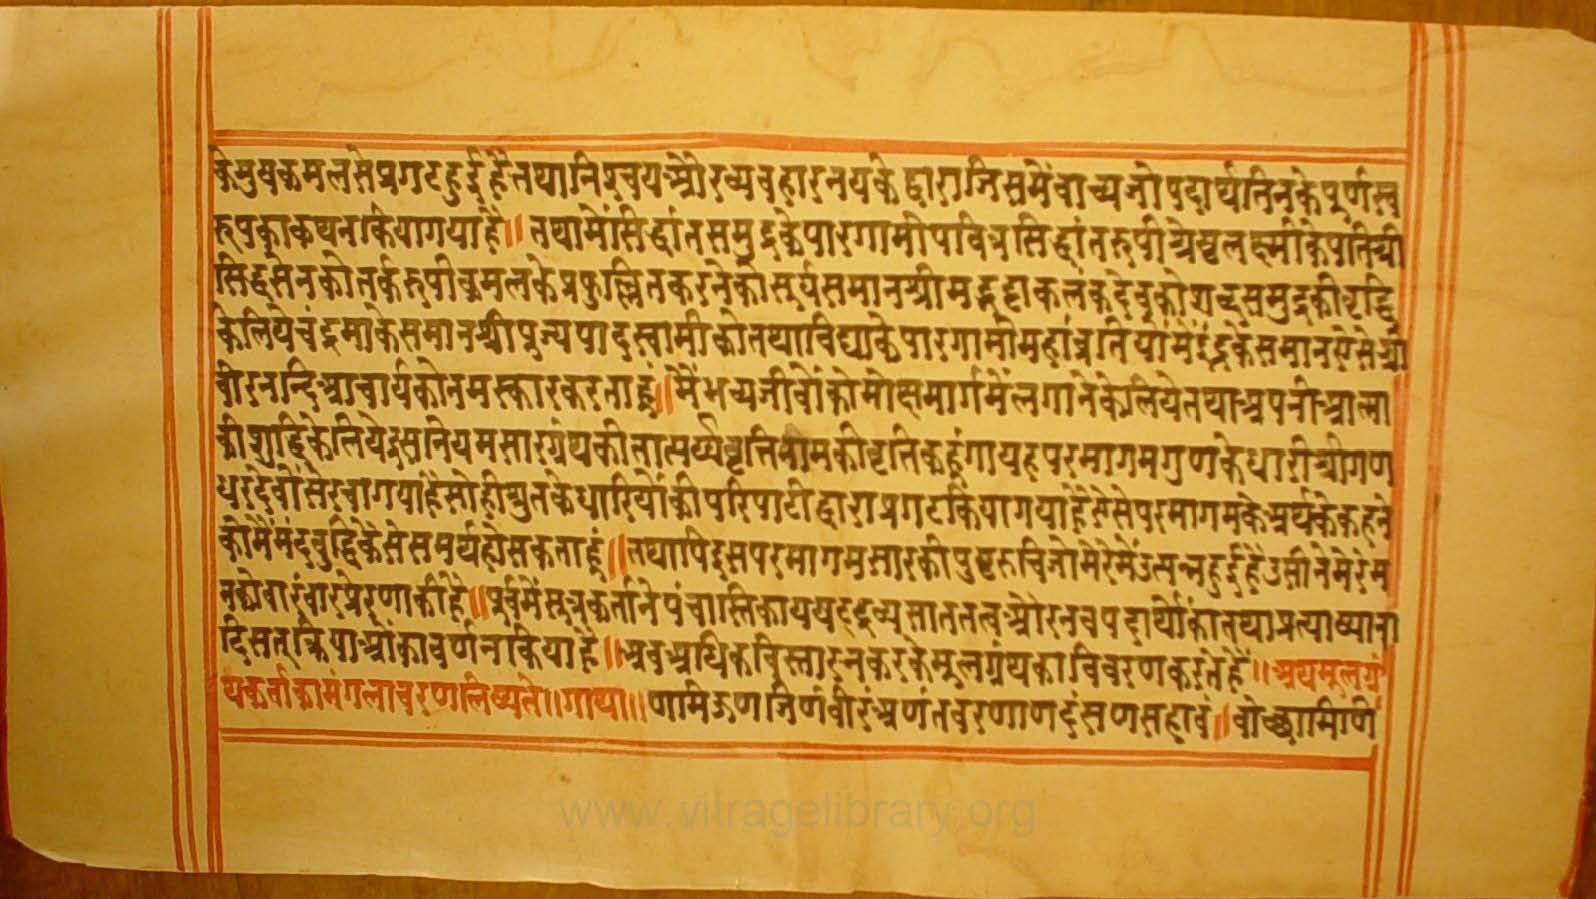 केमुषकमलसेप्रगटहुईहैतथानिश्चयऔरव्यवहारनयकेद्वाराजिसमेंवाच्यजोपदार्थतिनकेपूर्णस्व
रुपकाकथनकियागयाहै॥ तथामेंसिद्धांतसमुद्रकेपारगामीपवित्रसिद्धांतरुपीश्रेष्ठलक्ष्मीकेपतिश्री
सिद्धसेनकोतर्करुपीकमलकेप्रफुल्लितकरनेकोसूर्यसमानश्रीमद्भट्टाकलंकदेवकोशब्दसमुद्रकीवृद्धि
केलियेचंद्रमाकेसमानश्रीपूज्यपादस्वामीकोतथाविद्याकेपारगामीमहांव्रतियोंमेंइंद्रकेसमानऐसेश्री
वीरनन्दिआचार्यकोनमस्कारकरताहूं॥मैंभव्यजीवोंकोमोक्षमार्गमेंलगानेकेलियेतथाअपनीआत्मा
कीशुद्धिकेलियेइसनियमसारग्रंथकीतात्पर्य्यवृत्तिनामकीवृतिकहूंगायहपरमागमगुणकेधारीश्रीगण
धरदेवोंसेरचागयाहैसोहीश्रुतकेधारियोंकीपरिपाटीद्वाराप्रगटकियागयाहैऐसेपरमागमकेअर्थकेकहने
कोमैंमंदबुद्धिकैसेसमर्थहोसकताहूं॥तथापिइसपरमागमसारकीपुष्टरुचिजोमेरेमेंउत्पन्नहुईहैउसीनेमेरेम
नकोवारंवारप्रेरणाकीहै॥पूर्वमेंसूत्रकर्तानेपंचास्तिकायषटद्रव्यसाततत्वऔरनवपदार्थोकातथाप्रत्याख्याना
दिसतक्रियाओंकावर्णनकियाहै॥अबअधिकविस्तारनकरकेमूलग्रंथकाविवरणकरतेहैं॥अथमूलग्रं
थकर्ताकामंगलाचरणलिष्यते॥गाथा॥णमिऊणजिणंवीरंअणंतवरणाणदंसणसहावं॥वोच्छामिणि
www.vitragelibrary.org